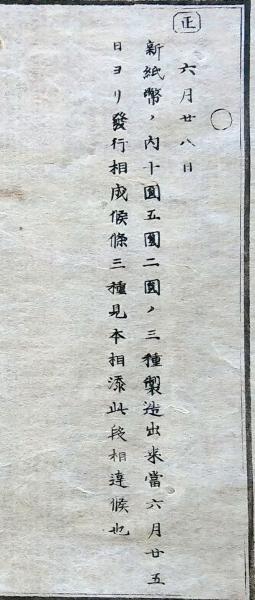 正
六月廿八日
新紙幣ノ内十圓五圓二圓ノ三種製造出来當六月廿五
日ヨリ發行相成候條三種見本相添此段相達候也